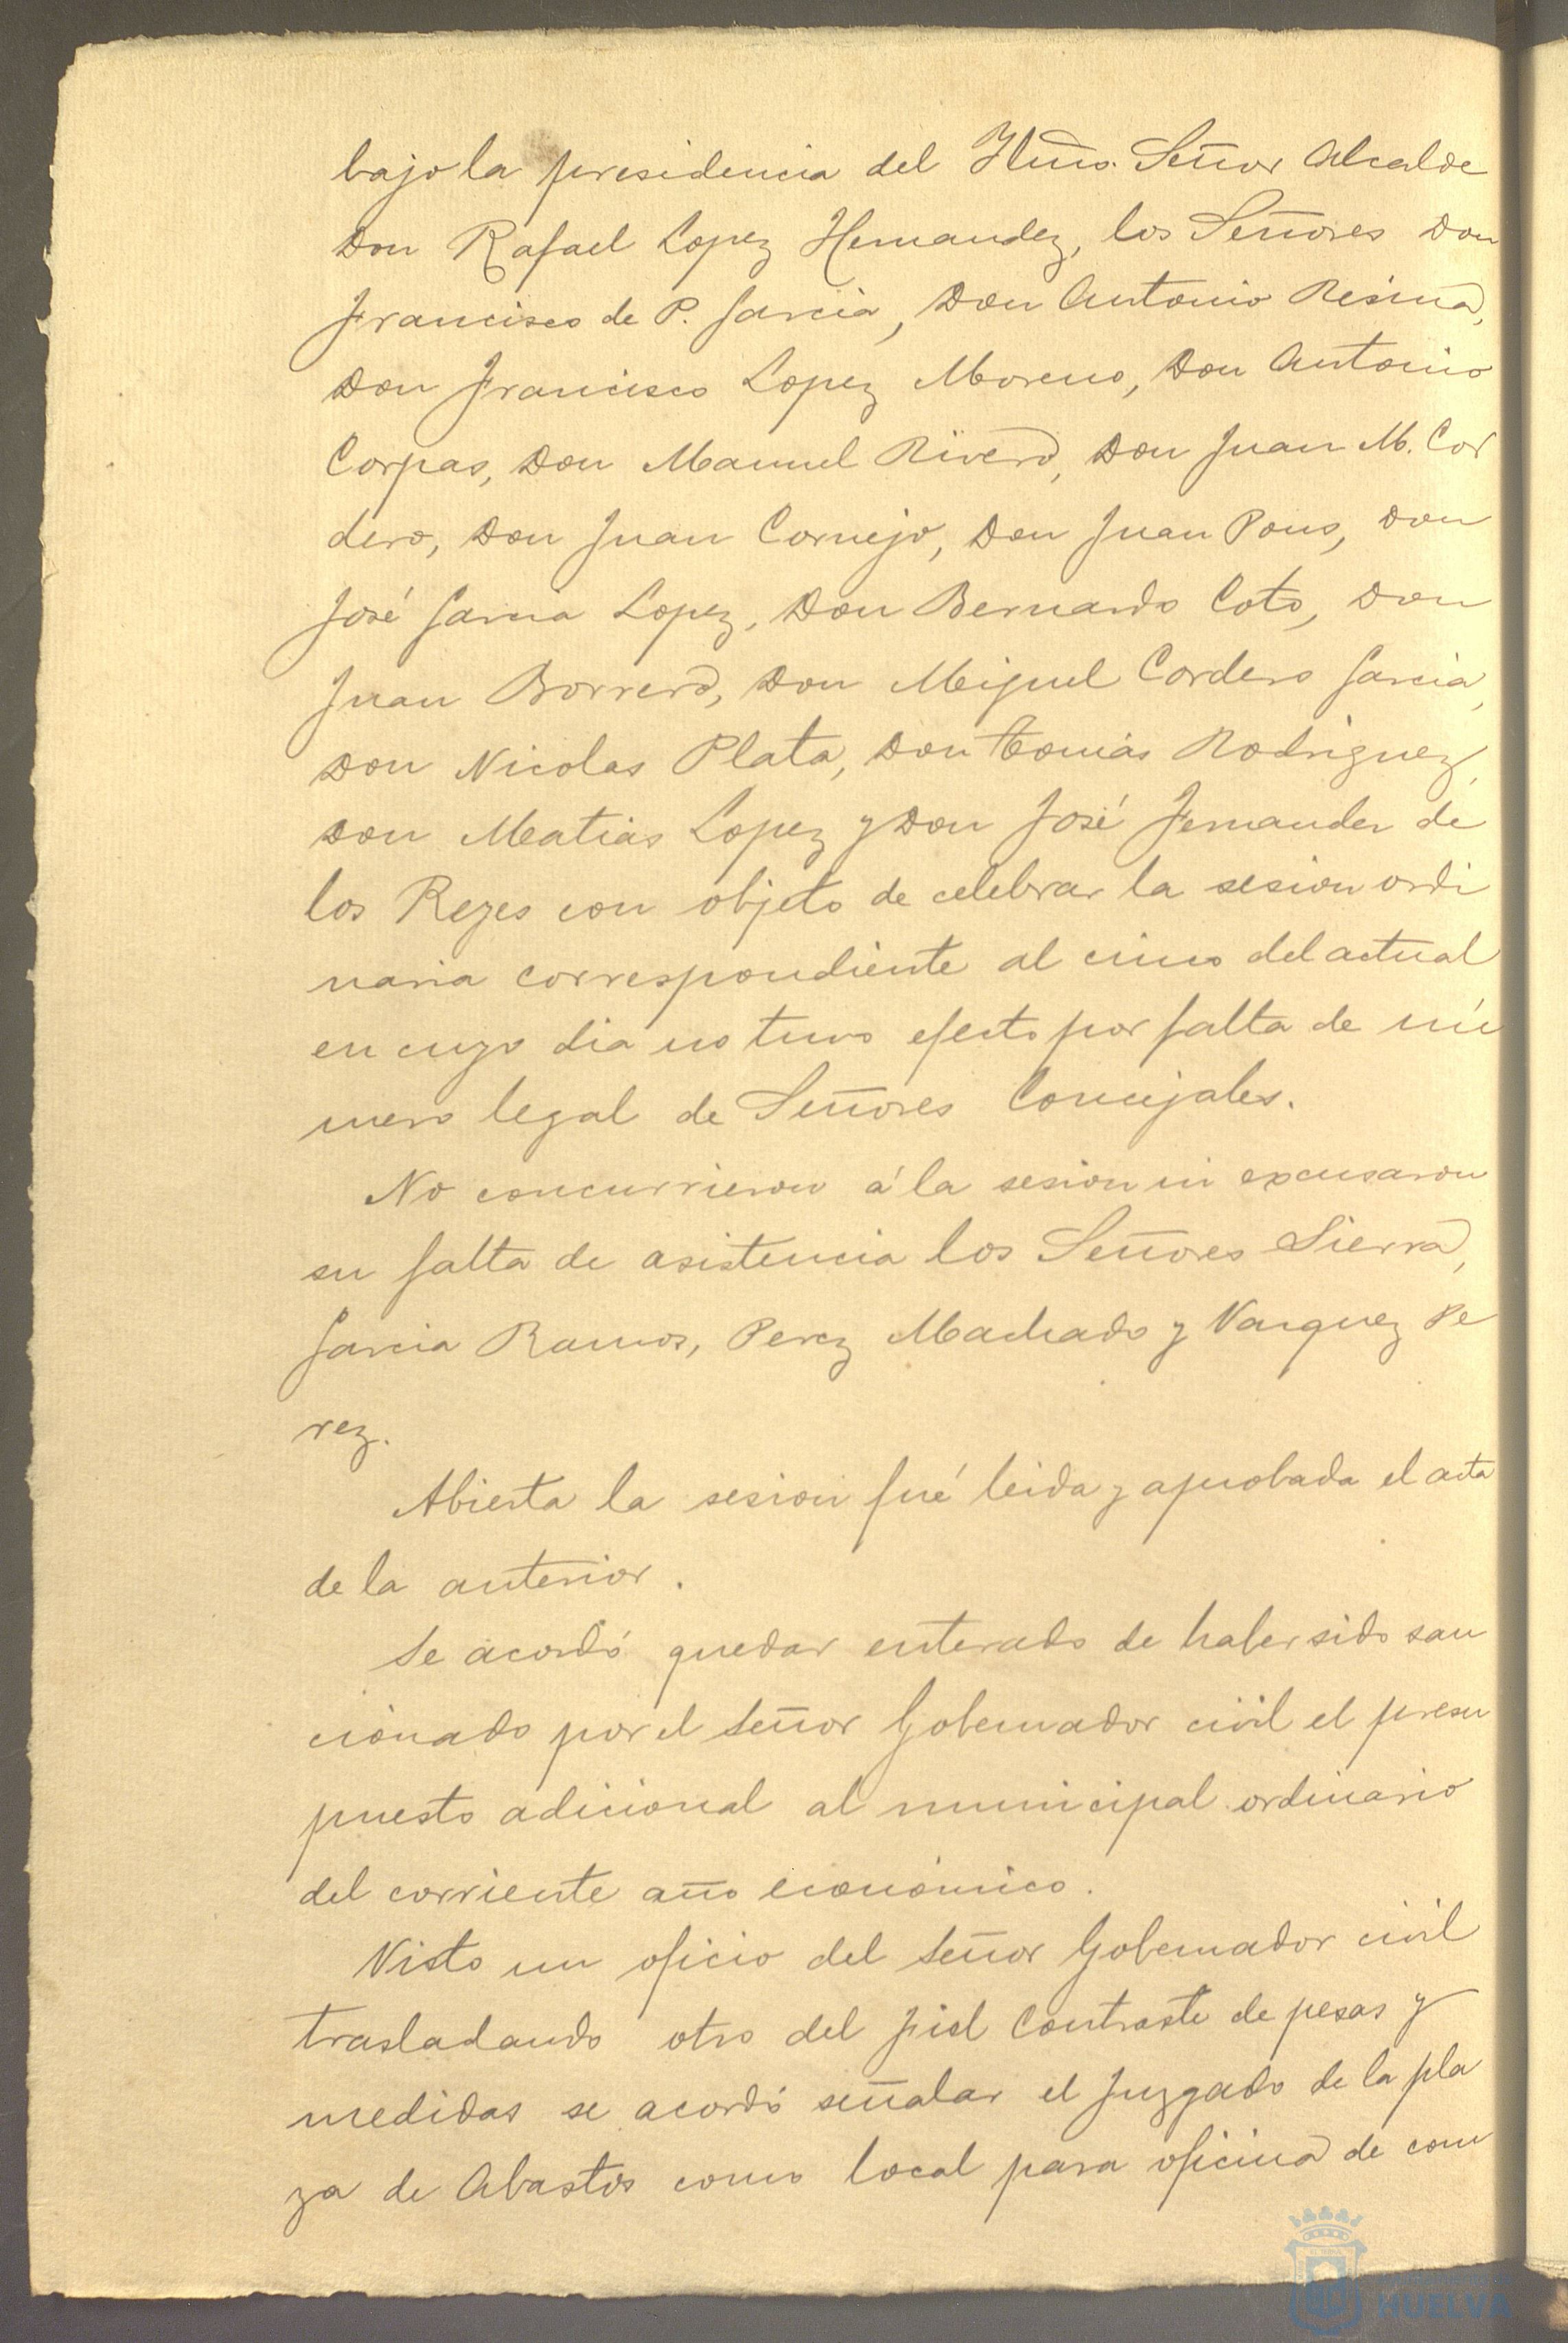 bajo la presidencia del Iltmo. Señor Alcalde
Don Rafael Lopez Hernandez, los Señores Don
Francisco de P. Garcia, Don Antonio Resina,
Don Francisco Lopez Moreno, Don Antonio
Corpas, Don Manuel Rivero, Don Juan M. Cor
dero, Don Juan Cornejo, Don Juan Pons, Don
José Garcia Lopez, Don Bernardo Coto, Don
Juan Borrero, Don Miguel Cordero Garcia,
Don Nicolas Plata, Don Tomás Rodriguez,
Don Matias Lopez y Don José Fernandez de
los Reyes con objeto de celebrar la sesion ordi
naria correspondiente al cinco del actual
en cuyo dia no tuvo efecto por falta de nú
mero legal de Señores Concejales.
No concurrieron á la sesion ni excusaron
su falta de asistencia los Señores Sierra,
Garcia Ramos, Perez Machado y Vazquez Pe
rez.
Abierta la sesion fué leida y aprobada el acta
de la anterior.
Se acordó quedar enterado de haber sido san
cionado por el Señor Gobernador civil el presu
puesto adicional al municipal ordinario
del corriente año económico.
Visto un oficio del Señor Gobernador civil
trasladando otro del Fiel Contraste de pesas y
medidas se acordó señalar el Juzgado de la pla
za de Abastos como local para oficina de com
HUELVA